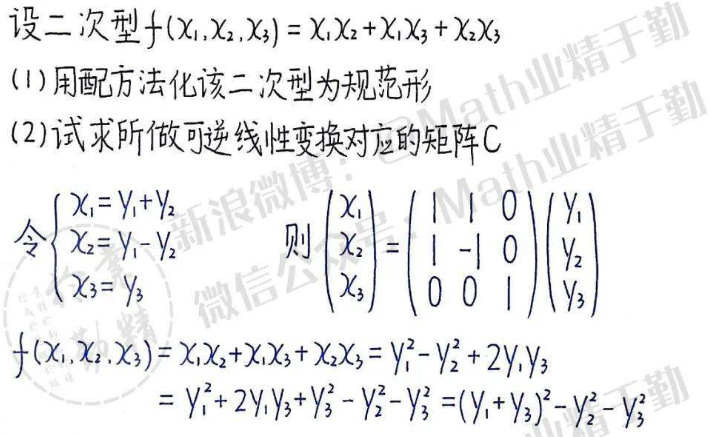 设二次型f(x₁,x₂,x₃) = x₁x₂+x₁x₃+x₂x₃
(1)用配方法化该二次型为规范形
(2)试求所做可逆线性变换对应的矩阵C
令{x₁=y₁+y₂ x₂=y₁-y₂ x₃=y₃ 则 (x₁ x₂ x₃) = (1 1 0 1 -1 0 0 0 1)(y₁ y₂ y₃)
f(x₁,x₂,x₃)=x₁x₂+x₁x₃+x₂x₃=y₁²-y₂²+2y₁y₃
=y₁²+2y₁y₃+y₃²-y₂²-y₃²=(y₁+y₃)²-y₂²-y₃²
新浪微博:@Math业精于勤
微信公众号:Math业精于勤